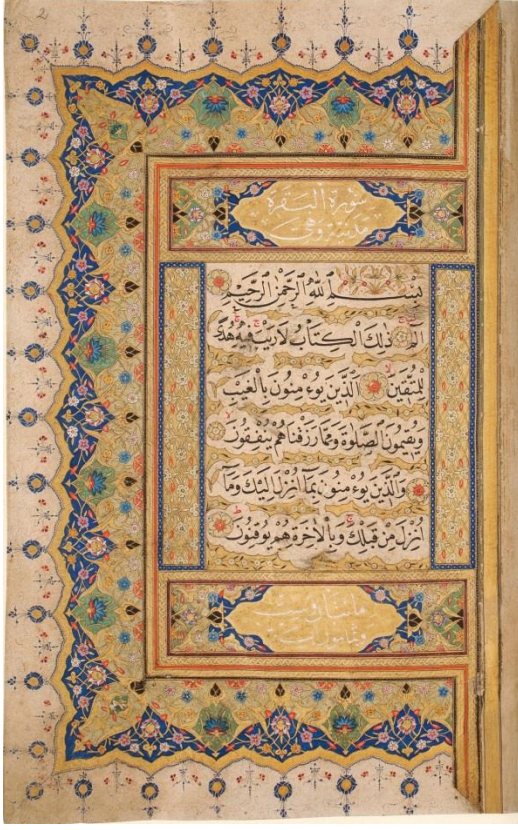 2
سورة البقرة
مدنية وهي
بِسْمِ اللّٰهِ الرَّحْمٰنِ الرَّحِيمِ
الٓمٓ ذٰلِكَ الْكِتَابُ لَا رَيْبَ فِيهِ هُدًى
لِلْمُتَّقِينَ الَّذِينَ يُؤْمِنُونَ بِالْغَيْبِ
وَيُقِيمُونَ الصَّلٰوةَ وَمِمَّا رَزَقْنَاهُمْ يُنْفِقُونَ
وَالَّذِينَ يُؤْمِنُونَ بِمَٓا اُنْزِلَ اِلَيْكَ وَمَٓا
اُنْزِلَ مِنْ قَبْلِكَ وَبِالْاٰخِرَةِ هُمْ يُوقِنُونَ
مايتان وست
وثمانون